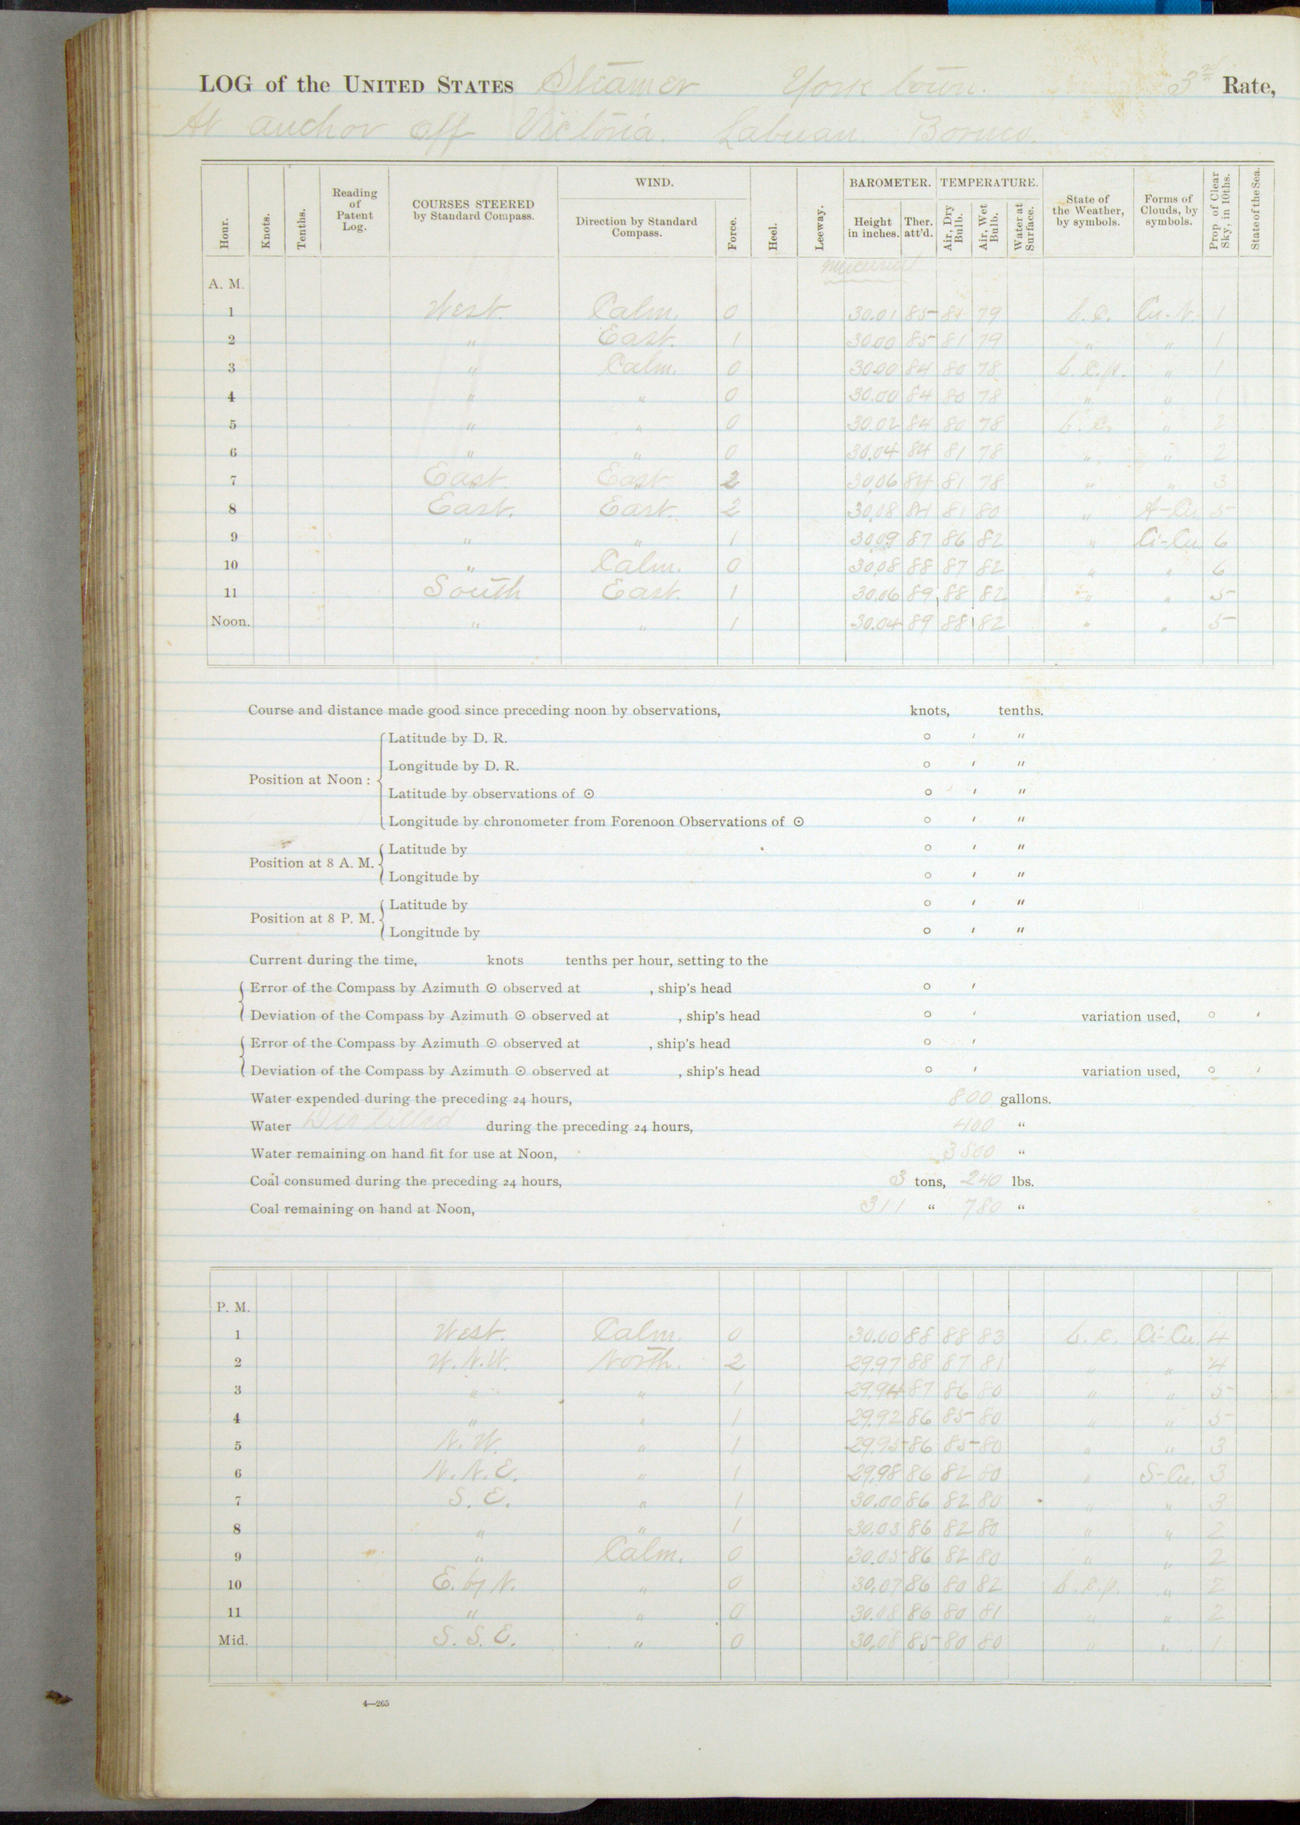 LOG of the UNITED STATES Steamer Yorktown. 3rd Rate,
At anchor off Victoria. Labuan. Borneo.
Hour. Knots. Tenths. Reading of Patent Log. COURSES STEERED by Standard Compass. WIND. Direction by Standard Compass. Force. Heel. Leeway. BAROMETER. Height in inches. Ther. att'd. TEMPERATURE. Air, Dry Bulb. Air, Wet Bulb. Water at Surface. State of the Weather, by symbols. Forms of Clouds, by symbols. Prop. of Clear Sky, in 10ths. State of the Sea.
mercurial
A. M.
1 West. Calm. 0 30.01 85 81 79 b.c. Cu.-N. 1
2 " East. 1 30.00 85 81 79 " " 1
3 " Calm. 0 30.00 84 80 78 b.c.p. " 1
4 " " 0 30.00 84 80 78 " " 1
5 " " 0 30.02 84 80 78 b.c. " 2
6 " " 0 30.04 84 81 78 " " 2
7 East. East 2 30.06 84 81 78 " " 3
8 East. East. 2 30.08 84 81 80 " A-Cu. 5
9 " " 1 30.09 87 86 82 " Ci-Cu 6
10 " Calm. 0 30.08 88 87 82 " " 6
11 South East. 1 30.06 89 88 82 " " 5
Noon. " " 1 30.04 89 88 82 " " 5
Course and distance made good since preceding noon by observations, knots, tenths.
Position at Noon: Latitude by D. R. ° ′ ″
Longitude by D. R. ° ′ ″
Latitude by observations of ☉ ° ′ ″
Longitude by chronometer from Forenoon Observations of ☉ ° ′ ″
Position at 8 A. M. Latitude by ° ′ ″
Longitude by ° ′ ″
Position at 8 P. M. Latitude by ° ′ ″
Longitude by ° ′ ″
Current during the time, knots tenths per hour, setting to the
Error of the Compass by Azimuth ☉ observed at , ship's head ° ′
Deviation of the Compass by Azimuth ☉ observed at , ship's head ° ′ variation used, ° ′
Error of the Compass by Azimuth ☉ observed at , ship's head ° ′
Deviation of the Compass by Azimuth ☉ observed at , ship's head ° ′ variation used, ° ′
Water expended during the preceding 24 hours, 800 gallons.
Water Distilled during the preceding 24 hours, 400 "
Water remaining on hand fit for use at Noon, 3500 "
Coal consumed during the preceding 24 hours, 3 tons, 240 lbs.
Coal remaining on hand at Noon, 311 " 780 "
P. M.
1 West. Calm. 0 30.00 88 88 83 b.c. Ci-Cu. 4
2 W.N.W. North. 2 29.97 88 87 81 " " 4
3 " " 1 29.94 87 86 80 " " 5
4 " " 1 29.92 86 85 80 " " 5
5 N.W. " 1 29.95 86 85 80 " " 3
6 N.N.E. " 1 29.98 86 82 80 " S-Cu. 3
7 S.E. " 1 30.00 86 82 80 " " 3
8 " " 1 30.03 86 82 80 " " 2
9 " Calm. 0 30.05 86 82 80 " " 2
10 E. by N. " 0 30.07 86 80 82 b.c.p. " 2
11 " " 0 30.08 86 80 81 " " 2
Mid. S.S.E. " 0 30.08 85 80 80 " " 1
4—265